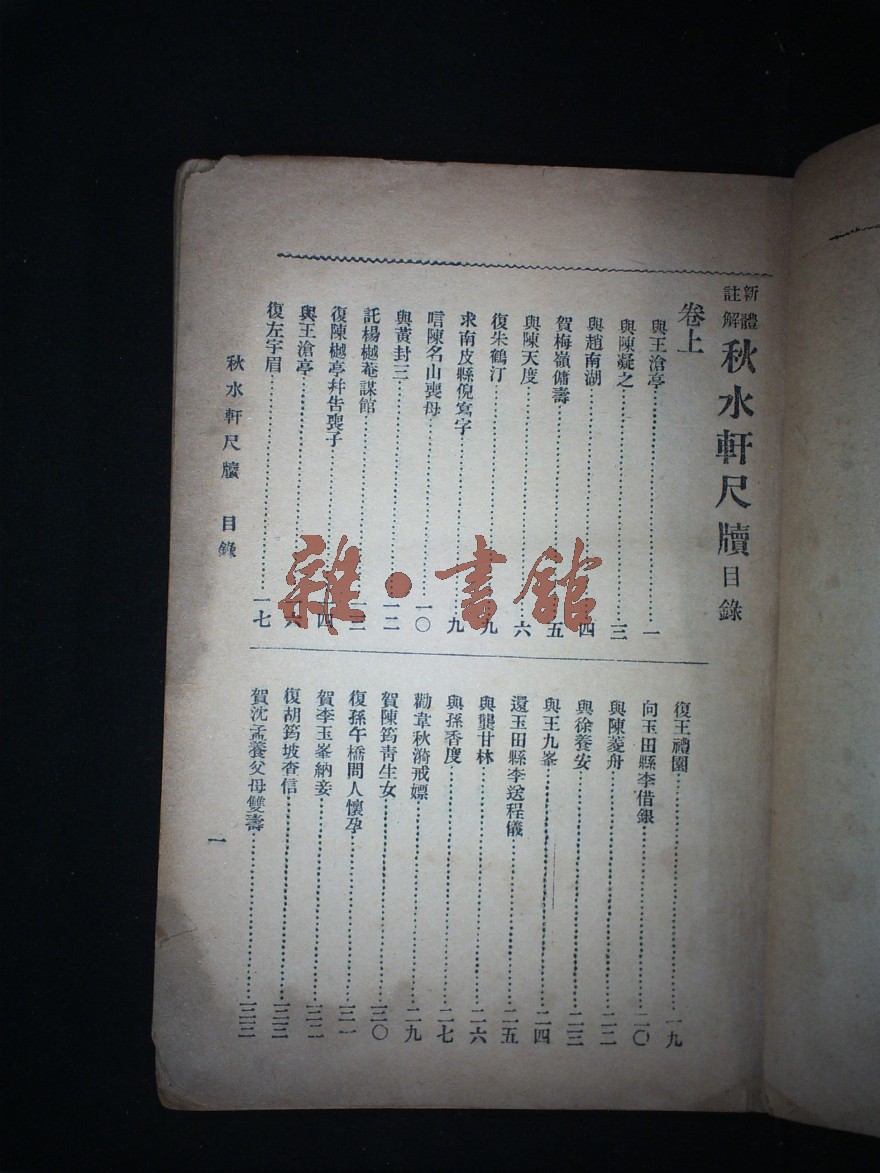 新體註解 秋水軒尺牘目錄
卷上
與王滄亭……一
與陳凝之……三
與趙南湖……四
賀梅嶺傭壽……五
與陳天度……六
復朱鶴汀……九
求南皮縣倪寫字……九
唁陳名山喪母……一〇
與黃封三……一二
託楊樾菴謀館……一三
復陳樾亭幷告喪子……一四
與王滄亭……一六
復左宇眉……一七
復王禮園……一九
向玉田縣李借銀……二〇
與陳菱舟……二二
與徐養安……二三
與王九峯……二四
還玉田縣李送程儀……二五
與龔甘林……二六
與孫香度……二七
勸韋秋漪戒嫖……二九
賀陳筠青生女……三〇
復孫午橋問人懷孕……三一
賀李玉峯納妾……三二
復胡筠坡查信……三三
賀沈孟養父母雙壽……三三
秋水軒尺牘 目錄
一
雜·書館